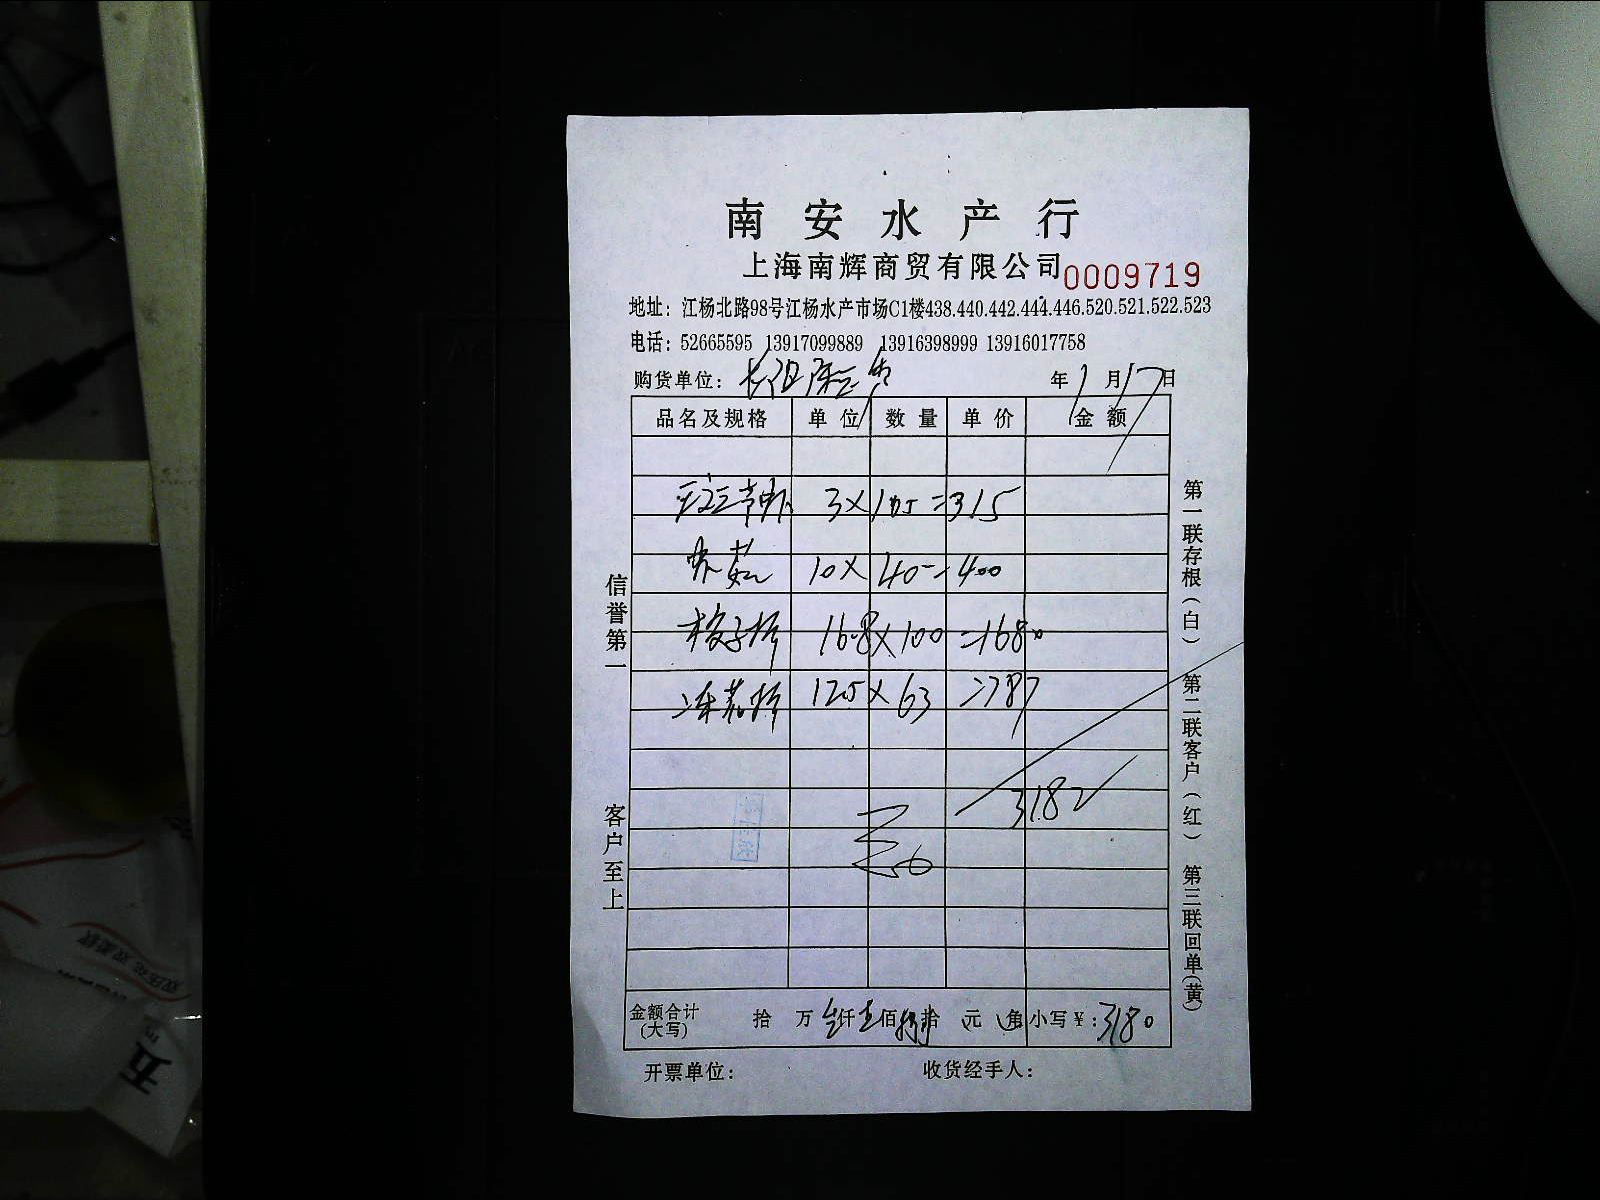 南安水产行
上海南辉商贸有限公司 0009719
地址：江杨北路98号江杨水产市场C1楼438.440.442.444.446.520.521.522.523
电话：52665595 13917099889 13916398999 13916017758
购货单位： 年1月17日
品名及规格 单位 数量 单价 金额
3×105=315
10×40=400
格子 16.8×100=1680
冻 125×63=787
3182
金额合计(大写) 拾 万 仟壹佰捌拾 元 角 小写￥：3180
开票单位： 收货经手人：
信誉第一 客户至上
第一联存根（白） 第二联客户（红） 第三联回单（黄）
五